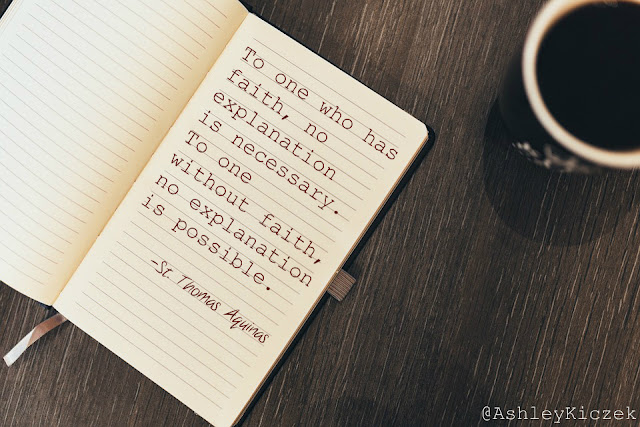 To one who has
faith, no
explanation
is necessary.
To one
without faith,
no explanation
is possible.
-St. Thomas Aquinas
@AshleyKiczek